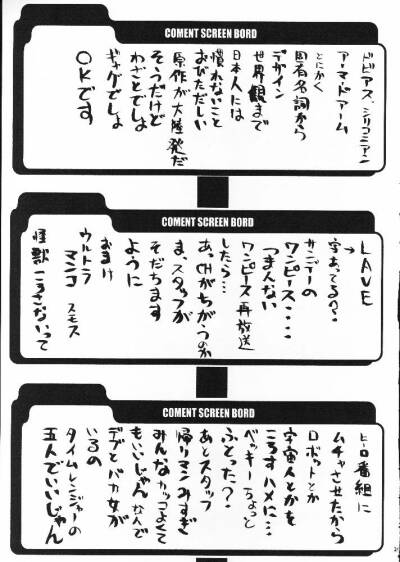 COMENT SCREEN BORD
ドビアス、シリコニアン
アーマードアーム
とにかく
固有名詞から
デザイン
世界観まで
日本人には
慣れないこと
おびただしい
原作が大陸発だ
そうだけど
わざとでしょ
ギャグでしょ
OKです
COMENT SCREEN BORD
LAVE
→字あってる?・・
サンデーの
ワンピース・・・
つまんない
ワンピース再放送
したら…
あ、CHがちがうのか
ま、スタッフが
そだちます
ように
おまけ
ウルトラ
マンコスモス
怪獣ころさないって
COMENT SCREEN BORD
ヒーロ番組に
ムチャさせたから
ロボットとか
宇宙人とかを
ころすハメに…
ベッキーちょっと
ふとった?
あとスタッフ
帰りマンみすぎ
みんなカッコよくて
もいいじゃんなんで
デブとバカ女が
いるの
タイムレンジャーの
五人でいいじゃん